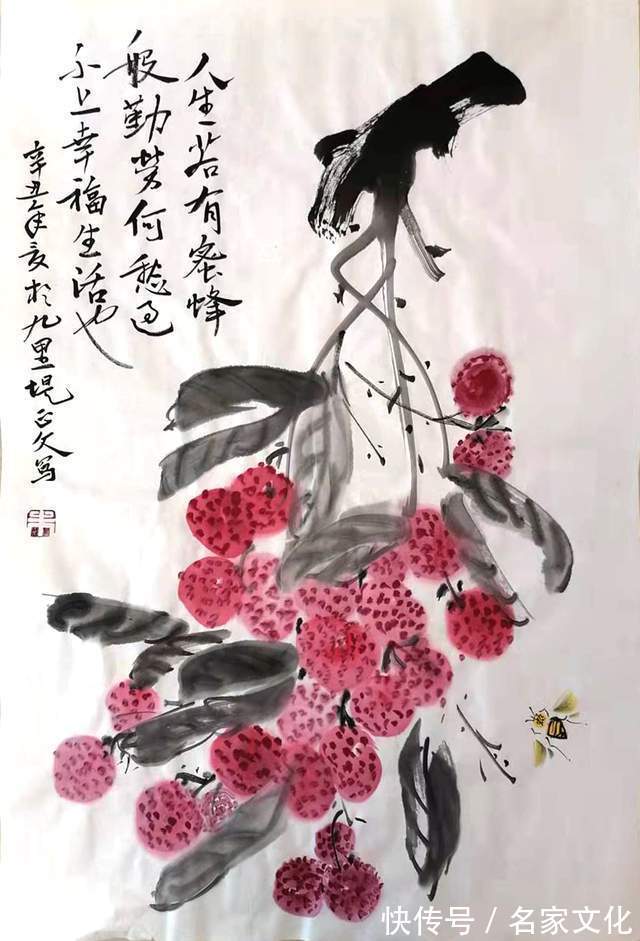 人生若有蜜蜂
般勤劳何愁过
不上幸福生活也
辛丑年夏于九里堤正文写
快传号/名家文化